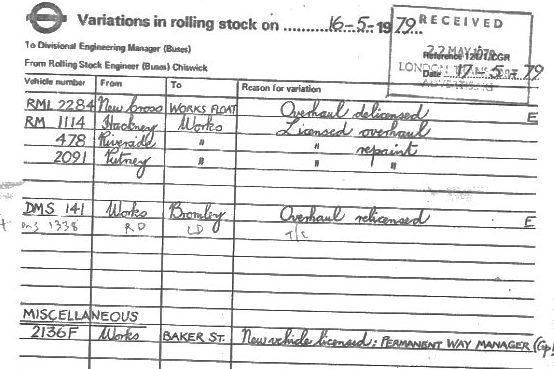 Variations in rolling stock on ........... 16-5-1979.
RECEIVED
22 MAY 1979
To Divisional Engineering Manager (Buses)
From Rolling Stock Engineer (Buses) Chiswick
Date 17-5-79
Vehicle number From To Reason for variation
RML 2284 New Cross WORKS FLOAT Overhaul delicensed E
RM 1114 Hackney Works Licensed overhaul
478 Riverside " " repaint
2091 Putney " " "
DMS 141 Works Bromley Overhaul relicensed E
DMS 1338 RD LD T/C
MISCELLANEOUS
2136F Works BAKER ST. New vehicle licensed: PERMANENT WAY MANAGER (Gp